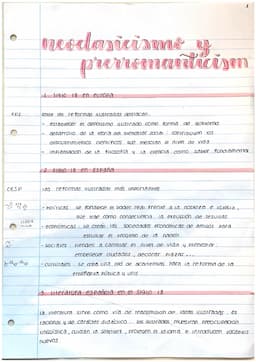 neoclasicismo y
prerromanticism
1. siglo 18 en europa
de reformas ilustradas
- establecer el despotismo ilustrado como forma de gobierno
- desarrollo de la teoría del contrato social
descubrimientos científicos que mejoran el nivel de vida
- implantación de la filosofía y la ciencia como saber fundamental
2. siglo 18 en españa
reformas ilustradas más importantes
- políticas: se fortalece el poder real frente a la nobleza e iglesia,
que trae como consecuencia la expulsión de jesuitas
- económicas: se crean las sociedades económicas de amigos para
estimular el progreso de la nación
- sociales: tienden a cambiar el nivel de vida y bienestar:
embellecer ciudades, decorar plazas...
- culturales: se crea una red de academias para la reforma de la
enseñanza pública y univ.
3. literatura española en el siglo 18
la literatura sirve como vía de transmisión de ideas ilustradas, es
racional y de carácter didáctico. los ilustrados muestran preocupación
lingüística, cuidan la simplicidad, protegen el idioma e introducen vocablos
nuevos